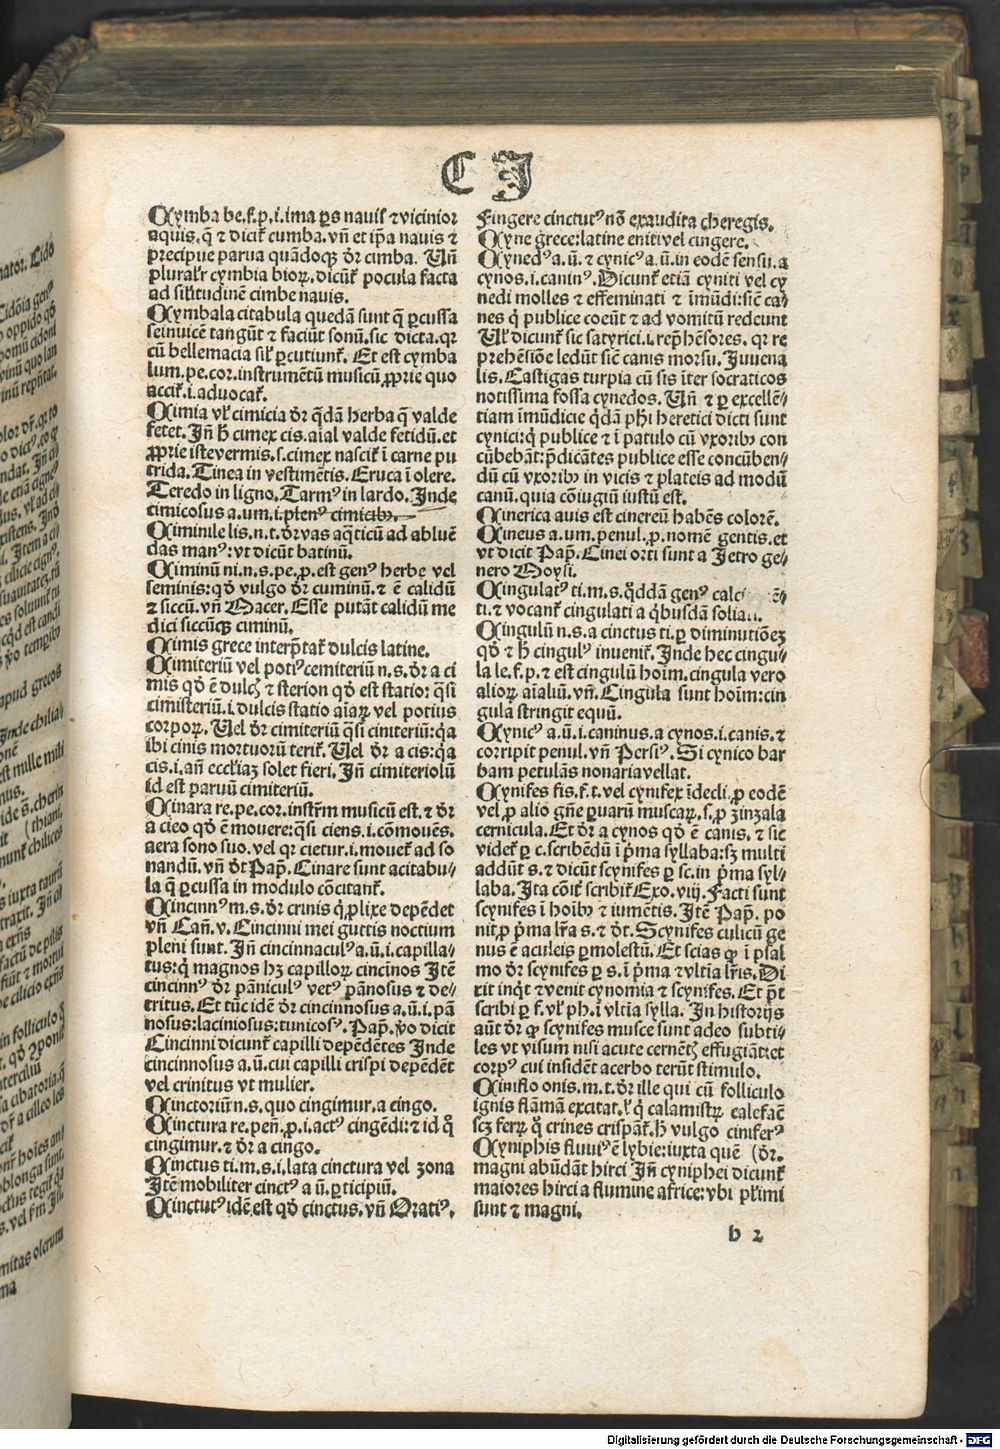 C I
Cymba be.f.p.i.ima ꝑs nauiſ ⁊ vicinior
aquis.q̄ ⁊ dicit̄ cumba.vñ et ip̄a nauis ⁊
precipue parua quãdoqꝫ dr̄ cimba. Uñ
plural'r cymbia bioꝝ.dicūt̄ pocula facta
ad sil'itudinē cimbe nauis.
Cymbala citabula quedã sunt q̄ ꝑcussa
seinuicē tangūt ⁊ faciūt sonū.sic dicta.qꝛ
cū bellemacia sil' ꝑcutiunt̄. Et est cymba
lum.pe.cor.instrumētū musicū ꝓprie quo
accit̄.i.aduocat̄.
Cimia vl' cimicia dr̄ q̄dã herba q̄ valde
fetet. Iñ h̄ cimex cis.aīal valde fetidū.et
ꝓprie iste vermis.s.cimex nascit̄ ī carne pu
trida. Tinea in vestimētis. Eruca ī olere.
Teredo in ligno. Tarmꝰ in lardo. Inde
cimicosus a.um.i.plenꝰ cimicibꝫ.
Ciminile lis.n.t.dr̄ vas aq̄ticū ad abluē
das manꝰ: vt dicūt batinū.
Ciminū ni.n.s.pe.ꝓ.est genꝰ herbe vel
seminis: qd̄ vulgo dr̄ cuminū.⁊ ē calidū
⁊ siccū.vñ Macer. Esse putãt calidū me
dici siccūqꝫ ciminū.
Cimis grece interp̄tat̄ dulcis latine.
Cimiteriū vel potiꝰ cemiteriū n.s.dr̄ a ci
mis qd̄ ē dulcꝫ ⁊ sterion qd̄ est statio: q̄si
cimisteriū.i.dulcis statio aīaꝝ vel potius
corpoꝝ. Uel dr̄ cimiteriū q̄si ciniteriū: q̄a
ibi cinis mortuorū terit̄. Uel dr̄ a cis: q̄a
cis.i.añ eccl'iaꝫ solet fieri. Iñ cimiteriolū
id est paruū cimiteriū.
Cinara re.pe.cor.instr̄m musicū est.⁊ dr̄
a cieo qd̄ ē mouere: q̄si ciens.i.cōmouēs.
aera sono suo.vel qꝛ cietur.i.mouet̄ ad so
nandū.vñ dt̄ Pap̄. Cinare sunt acitabu⸗
la q̄ ꝑcussa in modulo cōcitant̄.
Cincinnꝰ m.s.dr̄ crinis q̄ ꝓlixe depēdet
vñ Cañ.v. Cincinni mei guttis noctium
pleni sunt. Iñ cincinnaculꝰ a.ū.i.capilla⸗
tus: q̄ magnos hꝫ capilloꝝ cincinos Itē
cincinnꝰ dr̄ pãniculꝰ vetꝰ pãnosus ⁊ de⸗
tritus. Et tūc idē dr̄ cincinnosus a.ū.i.pã
nosus: laciniosus: tunicosꝰ. Pap̄.v̄o dicit
Cincinni dicunt̄ capilli depēdētes Inde
cincinnosus a.ū.cui capilli crispi depēdēt
vel crinitus vt mulier.
Cinctoriū n.s.quo cingimur.a cingo.
Cinctura re.peñ.ꝓ.i.actꝰ cingēdi: ⁊ id q̊
cingimur.⁊ dr̄ a cingo.
Cinctus ti.m.s.i.lata cinctura vel zona
Itē mobiliter cinctꝰ a ū.ꝑticipiū.
Cinctutꝰ idē est qd̄ cinctus.vñ Oratiꝰ.
Fingere cinctutꝰ nō exaudita cheregis.
Cyne grece: latine eniti vel cingere.
Cynedꝰ a.ū.⁊ cynicꝰ a.ū.in eodē sensu.a
cynos.i.caninꝰ. Dicunt̄ etiã cyniti vel cy
nedi molles ⁊ effeminati ⁊ īmūdi: sic̄ ca⸗
nes q̄ publice coeūt ⁊ ad vomitū redeunt
Ul' dicunt̄ sic satyrici.i.rep̄hēsores.qꝛ re
prehēsiōe ledūt sic̄ canis morsu. Iuuena
lis. Castigas turpia cū sis īter socraticos
notissima fossa cynedos. Uñ ⁊ ꝑ excellē⸗
tiam īmūdicie q̄dã ph̄i heretici dicti sunt
cynici: q̄ publice ⁊ ī patulo cū vxoribꝫ con
cūbebãt: p̄dicãtes publice esse concūben⸗
dū cū vxoribꝫ in vicis ⁊ plateis ad modū
canū.quia cōiugiū iustū est.
Cinerica auis est cinereū habēs colorē.
Cineus a.um.penul.ꝓ.nomē gentis.et
vt dicit Pap̄. Cinei orti sunt a Ietro ge⸗
nero Moysi.
Cingulatꝰ ti.m.s.q̄ddã genꝰ calci
ti.⁊ vocant̄ cingulati a q̄busdã
Cingulū n.s.a cinctus ti.ꝑ diminutiōeꝫ
qd̄ ⁊ h̄ cingulꝰ inuenit̄. Inde hec cingu⸗
la le.f.p.⁊ est cingulū hoīm.cingula vero
alioꝝ aīaliū.vñ. Cingula sunt hoīm: cin
gula stringit equū.
Cynicꝰ a.ū.i.caninus.a cynos.i.canis.⁊
corripit penul.vñ Persiꝰ. Si cynico bar
bam petulãs nonaria vellat.
Cynifes fis.f.t.vel cynifex īdecli.ꝓ eodē
vel ꝓ alio gñe ꝑuarū muscaꝝ.s.ꝓ zinzala
cernicula. Et dr̄ a cynos qd̄ ē canis.⁊ sic
videt̄ ꝑ c.scribēdū ī p̄ma syllaba: sꝫ multi
addūt s.⁊ dicūt scynifes ꝑ sc.in p̄ma syl⸗
laba. Ita cōit̄ scribit̄ Exo.viij. Facti sunt
scynifes ī hoībꝫ ⁊ iumētis. Itē Pap̄. po
nit ꝓ p̄ma l̄ra s.⁊ dt̄. Scynifes culicū ge
nus ē aculeis ꝑmolestū. Et scias ꝙ ī psal
mo dr̄ scynifes ꝑ s.ī p̄ma ⁊ vltīa l̄ris. Di
xit inq̄t ⁊ venit cynomia ⁊ scynifes. Et p̄t
scribi ꝑ f.vl' ph.ī vltīa sylla. In historijs
aūt dr̄ ꝙ scynifes musce sunt adeo subti⸗
les vt visum nisi acute cernētꝫ effugiãt: et
corpꝰ cui insidēt acerbo terūt stimulo.
Ciniflo onis.m.t.dr̄ ille qui cū folliculo
ignis flãmã excitat.l' q̄ calamistꝝ calefac̄
scꝫ ferꝝ q̊ crines crispãt̄.h̄ vulgo ciniferꝰ
Cyniphis fluuiꝰ ē lybie: iuxta quē (dr̄.
magni abūdãt hirci Iñ cyniphei dicunt̄
maiores hirci a flumine africe: vbi pl'imi
sunt ⁊ magni.
b 2
Digitalisierung gefördert durch die Deutsche Forschungsgemeinschaft - DFG